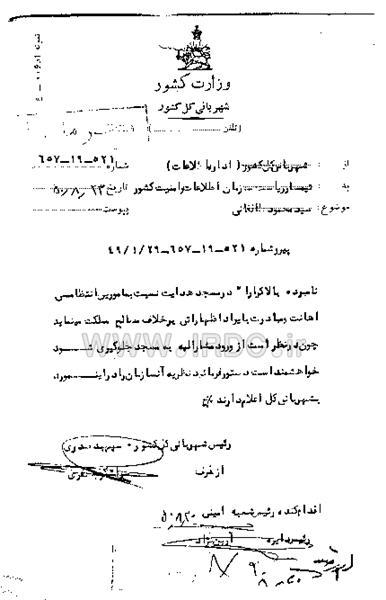 وزارت کشور
شهربانی کل کشور
از : شهربانی کل کشور (اداره اطلاعات) شماره ۵۲۱-۱۹-۶۵۷
به : تیمسار ریاست سازمان اطلاعات و امنیت کشور تاریخ ۵۰/۸/۲۳
موضوع : سید محمود طالقانی پیوست
پیرو شماره ۵۲۱-۱۹-۶۵۷-۴۹/۱/۲۹
نامبرده بالا کرارا" در مسجد هدایت نسبت به مامورین انتظامی
اهانت و مبادرت بایراد اظهاراتی بر خلاف مصالح مملکت مینماید
چون در نظر است از ورود مشارالیه به مسجد جلوگیری شود
خواهشمند است دستور فرمائید نظریه آن سازمان را در این مورد
بشهربانی کل اعلام دارند
WWW.IRDC.ir
رئیس شهربانی کل کشور - سپهبد صدری
از طرف
اقدام کننده رئیس شعبه امینی ۵۰/۸/۲۰
رئیس دایره